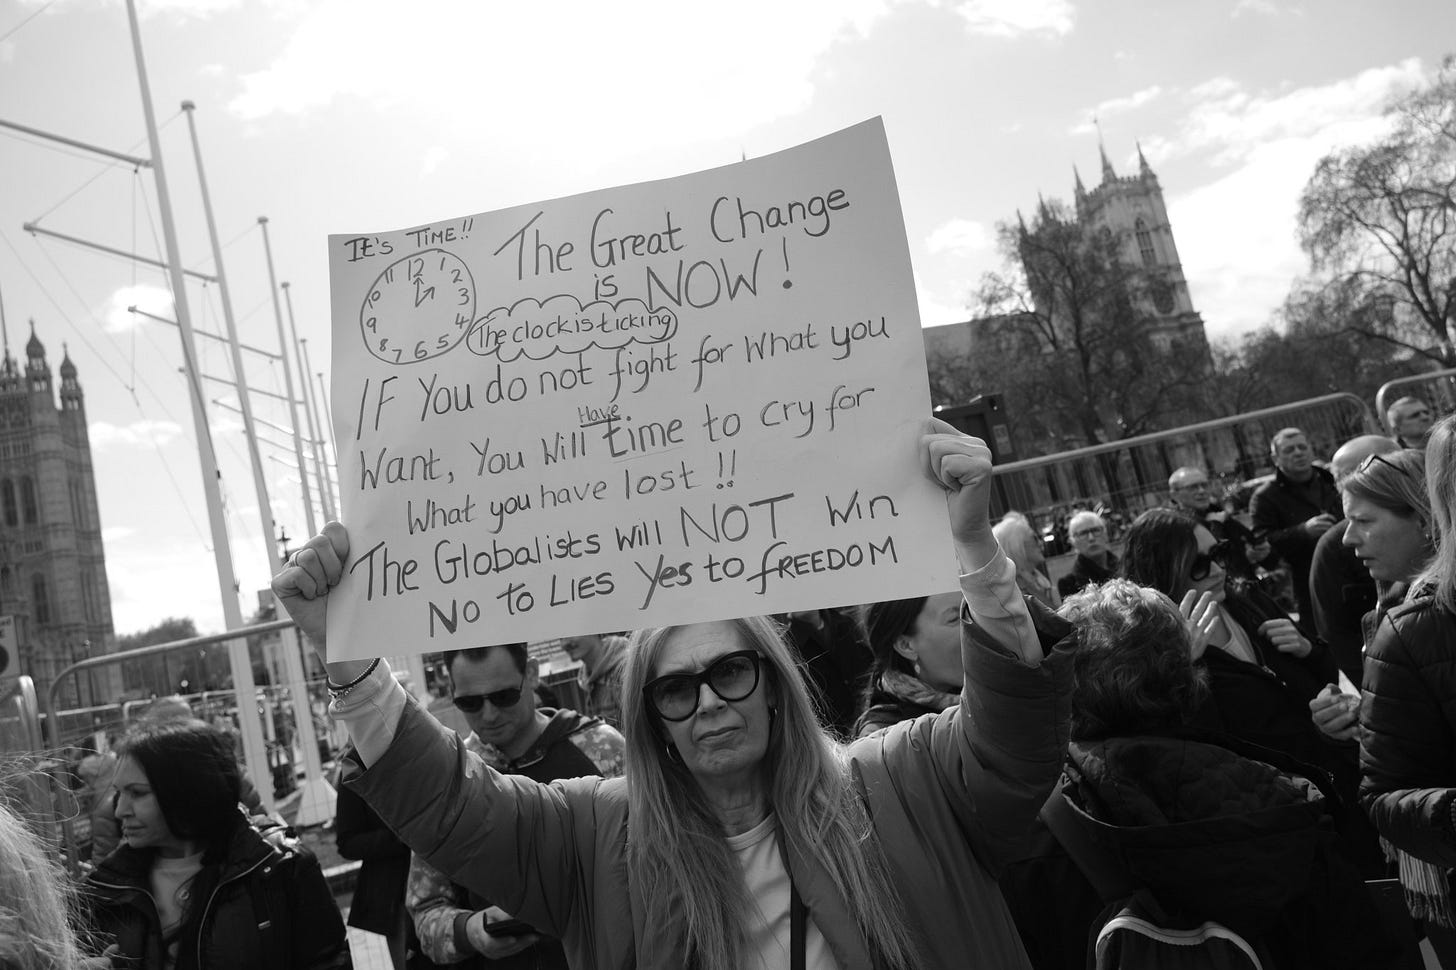 IT'S TIME!!
The Great Change
is NOW!
11 12 1
10 2
9 3
8 4
7 6 5
The clock is ticking
IF You do not fight for What you
Want, You Will Have time to cry for
What you have lost !!
The Globalists will NOT Win
No to LIES Yes to FREEDOM